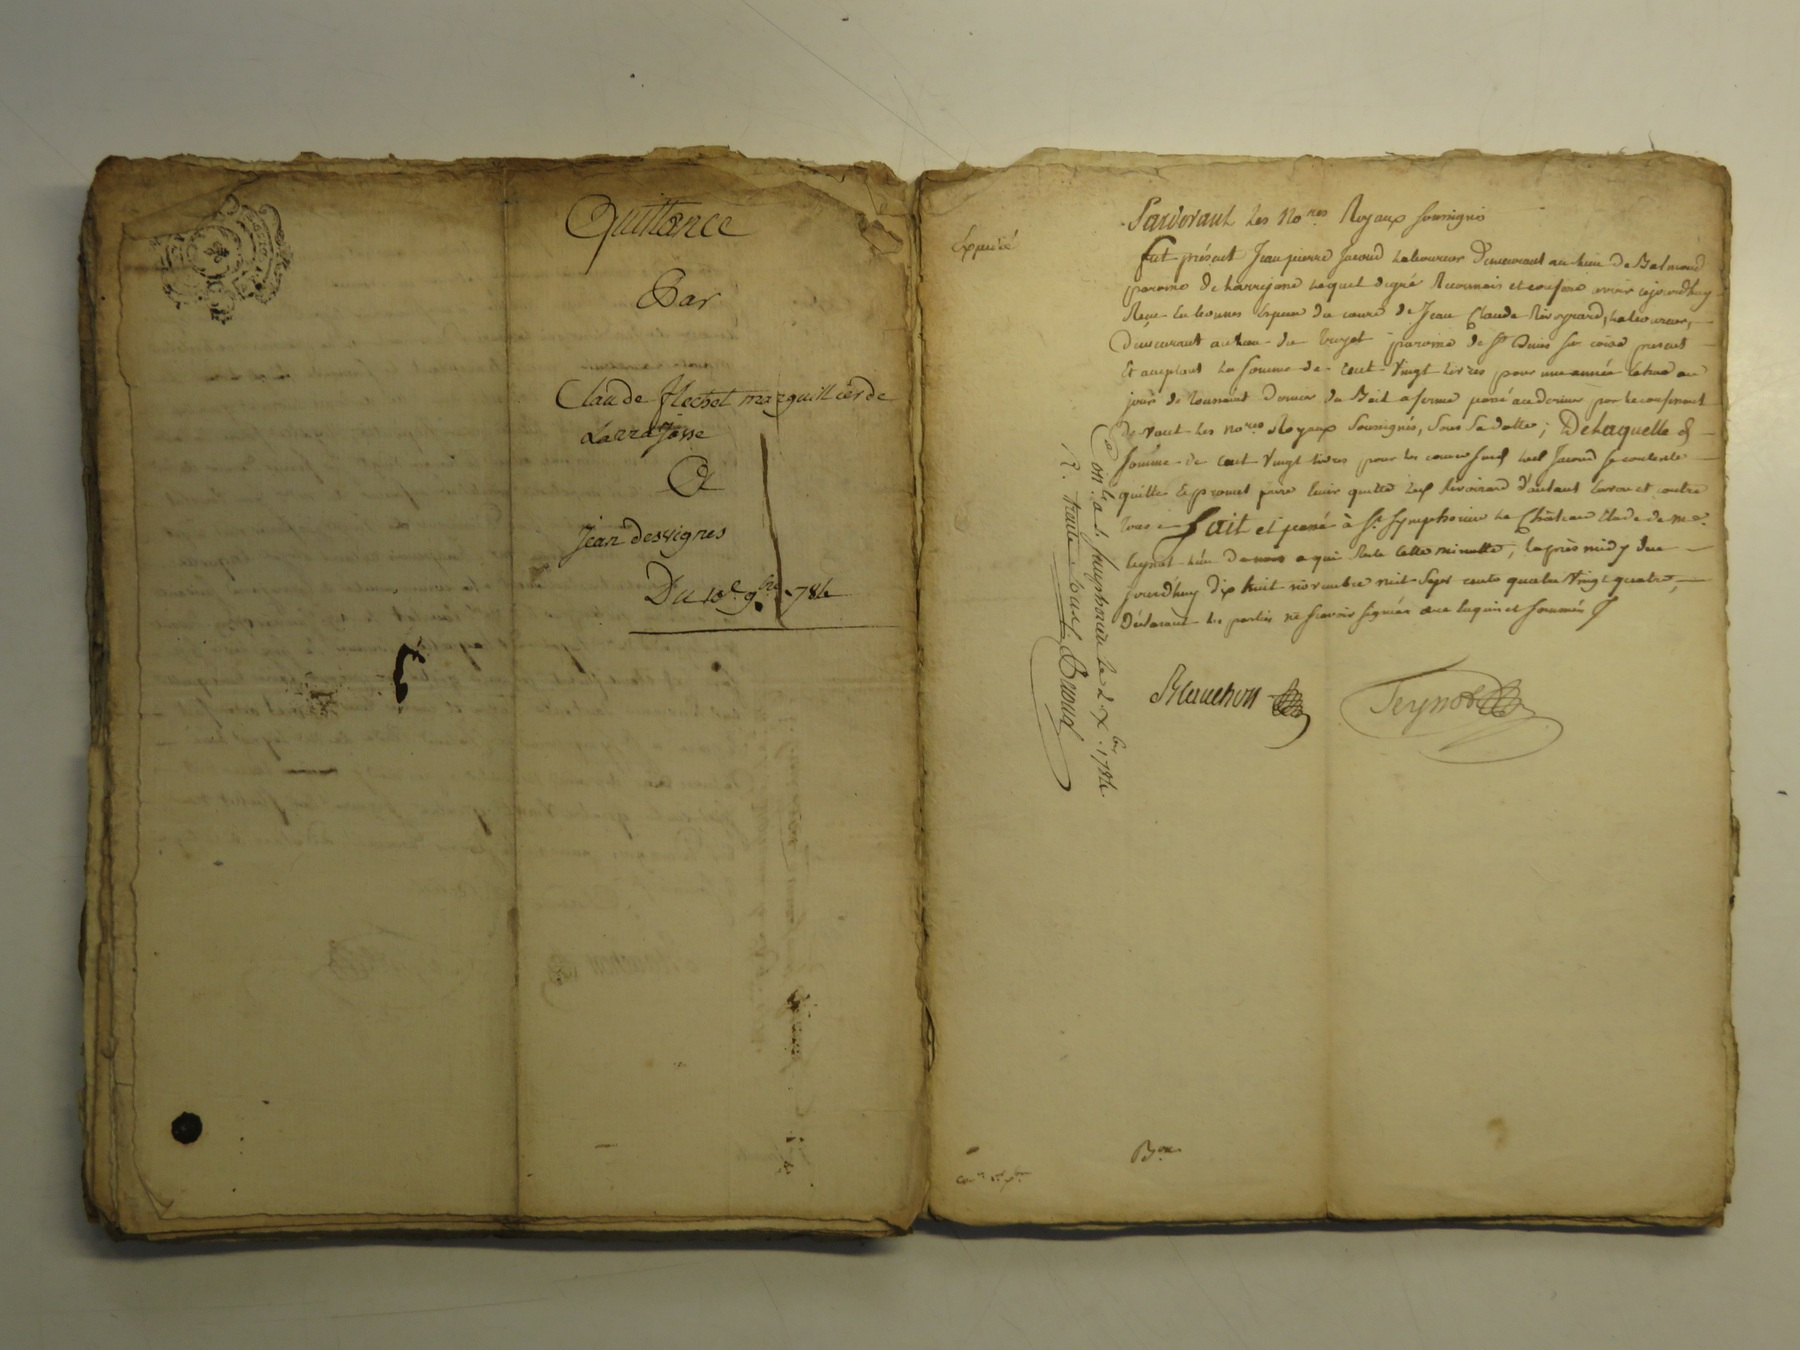 Quittance
Par
Claude flechet marguillier de
Larrajasse
Et
Jean desvignes
Du 18e 9bre 1784
Expedié
Pardevant Les No.res Royaux soussignés
fut présent Jean pierre Jacoud Laboureur demeurant au lieu de
paroisse de Larrajasse Lequel degré Reconnois et confesse avoir cejourdhuy
Reçu En bonnes Espece du cours de Jean Claude Laboureur,
demeurant au lieu du paroisse de St Denis sur coise present
Et acceptant La somme de Cent Vingt Livres pour une année Echue au
jour de Toussaint dernier du Bail a ferme passé au dernier par le confessant
devant Les no.res Royaux Soussignés, Sous Sa datte; De Laquelle d.
somme de cent Vingt livres pour les causes Jacoud se contente
quitte Et promet faire tenir quitte d'autant Envers et contre
tous Fait et passé à St Symphorien Le Château Etude de me.
teynot l'un de nous a qui Reste cette minutte, Laprès midy du
jourd'huy dix huit novembre mil Sept cents quatre Vingt quatre,
déclarant les parties ne sçavoir signer de ce Enquis et sommés
Blanchon Teynot
Con.lé a St Simphorien le 2 Xbre 1784.
R. trente sous Bruoud